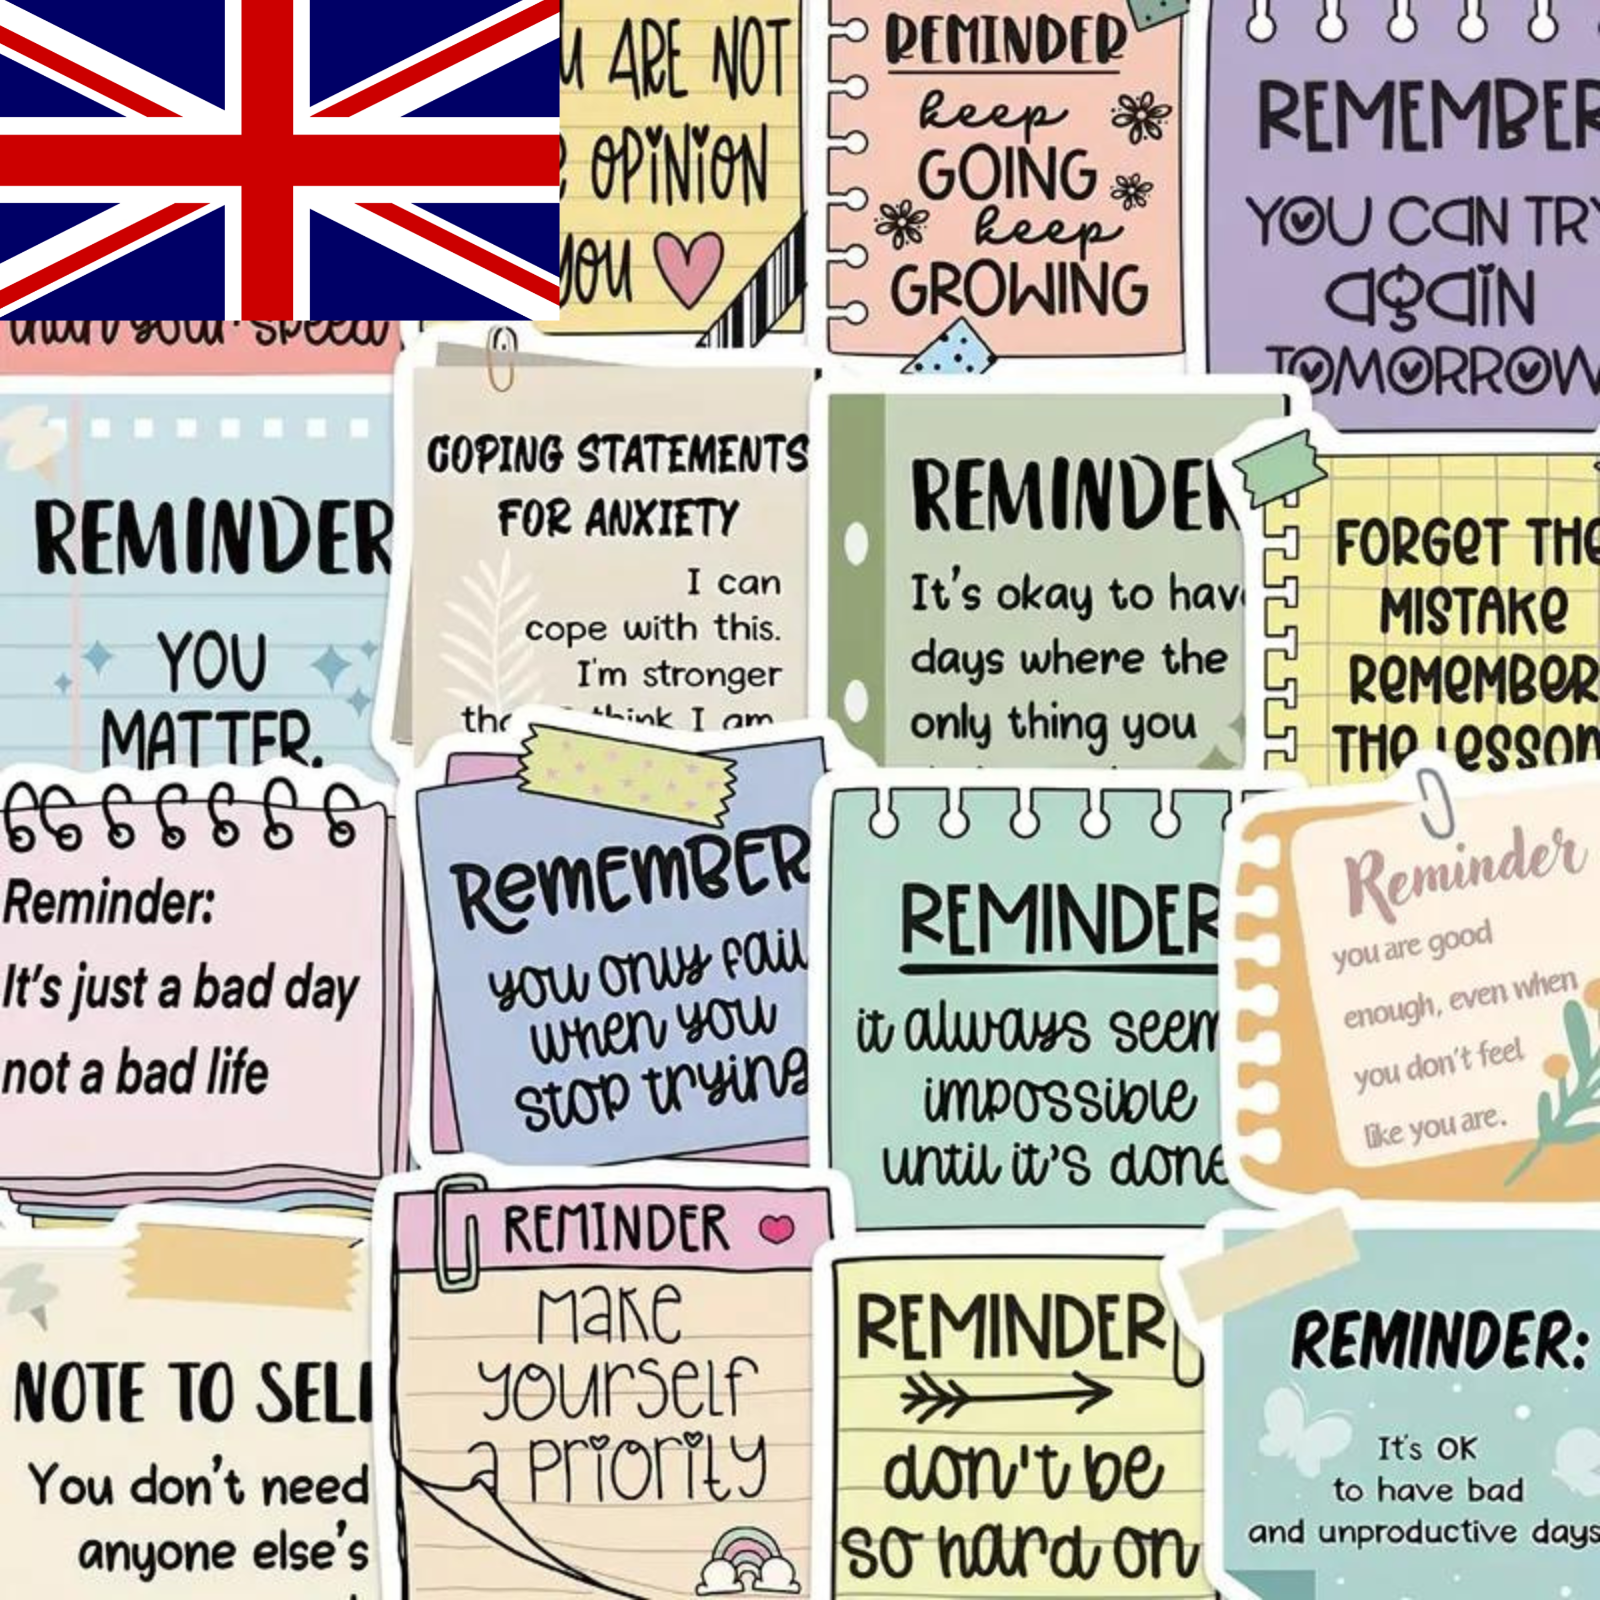 ARE NOT
OPINION
you
REMINDER
keep
GOING
keep
GROWING
REMEMBER
YOU CAN TRY
again
TOMORROW
than your speed
REMINDER
YOU
MATTER.
COPING STATEMENTS
FOR ANXIETY
I can
cope with this.
I'm stronger
think I am
REMINDER
It's okay to have
days where the
only thing you
FORGET THE
MISTAKE
REMEMBER
THE LESSON
Reminder:
It's just a bad day
not a bad life
REMEMBER
you only fail
when you
stop trying
REMINDER
it always seem
impossible
until it's done
Reminder
you are good
enough, even when
you don't feel
like you are.
NOTE TO SELF
You don't need
anyone else's
REMINDER
make
yourself
a priority
REMINDER
don't be
so hard on
REMINDER:
It's OK
to have bad
and unproductive days